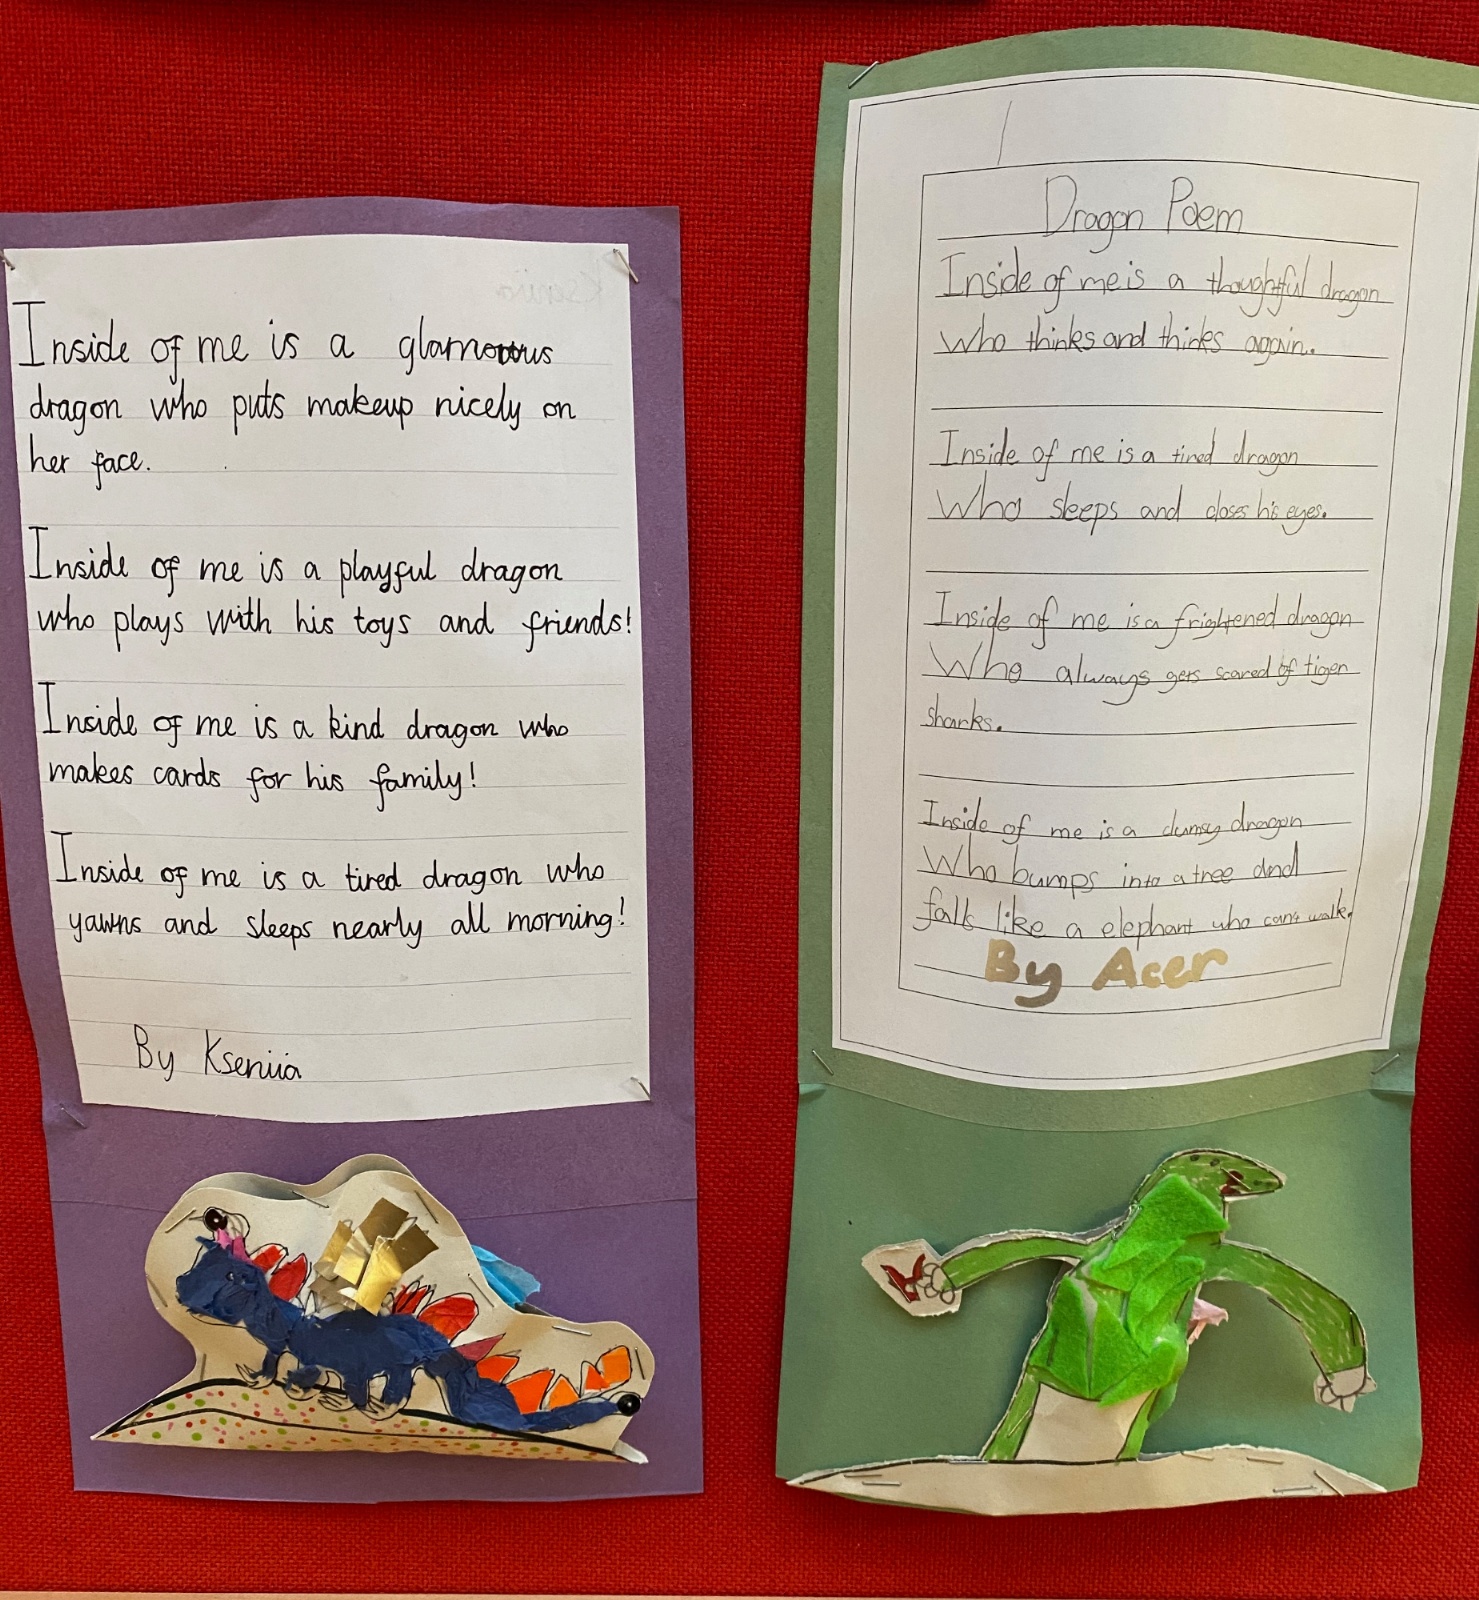 Inside of me is a glamorous
dragon who puts makeup nicely on
her face.
Inside of me is a playful dragon
who plays with his toys and friends!
Inside of me is a kind dragon who
makes cards for his family!
Inside of me is a tired dragon who
yawns and sleeps nearly all morning!
By Kseniia
Dragon Poem
Inside of me is a thoughtful dragon
Who thinks and thinks again.
Inside of me is a tired dragon
Who sleeps and closes his eyes.
Inside of me is a frightened dragon
Who always gets scared of tiger
sharks.
Inside of me is a clumsy dragon
Who bumps into a tree and
falls like a elephant who can't walk.
By Acer